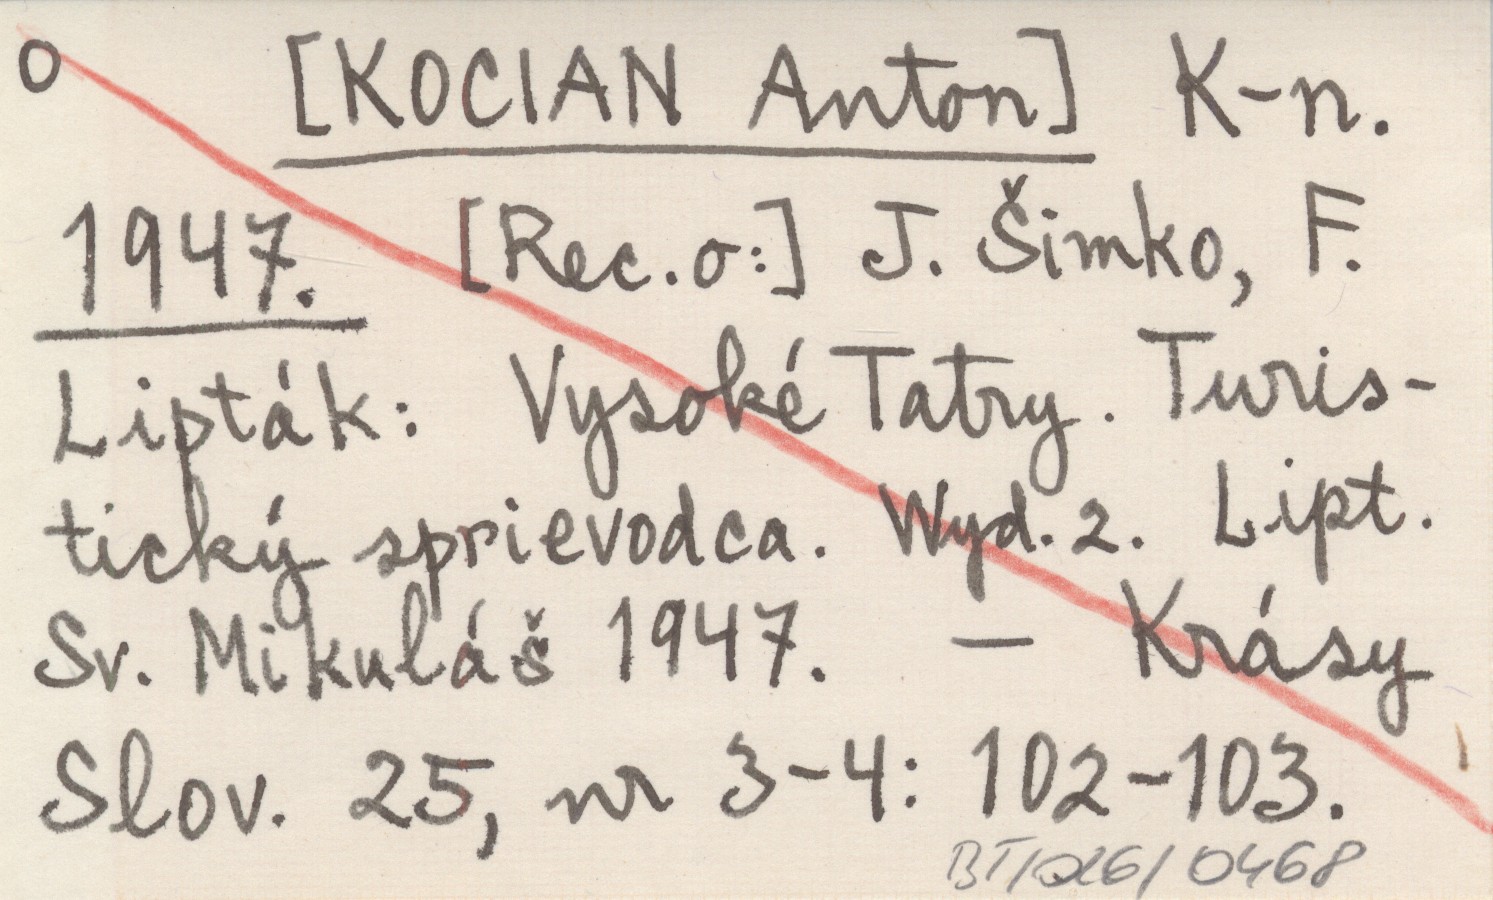 o [KOCIAN Anton] K-n.
1947. [Rec. o:] J. Šimko, F.
Lipták: Vysoké Tatry. Turis-
tický sprievodca. Wyd. 2. Lipt.
Sv. Mikuláš 1947. — Krásy
Slov. 25, nr 3-4: 102-103.
BT/026/0468